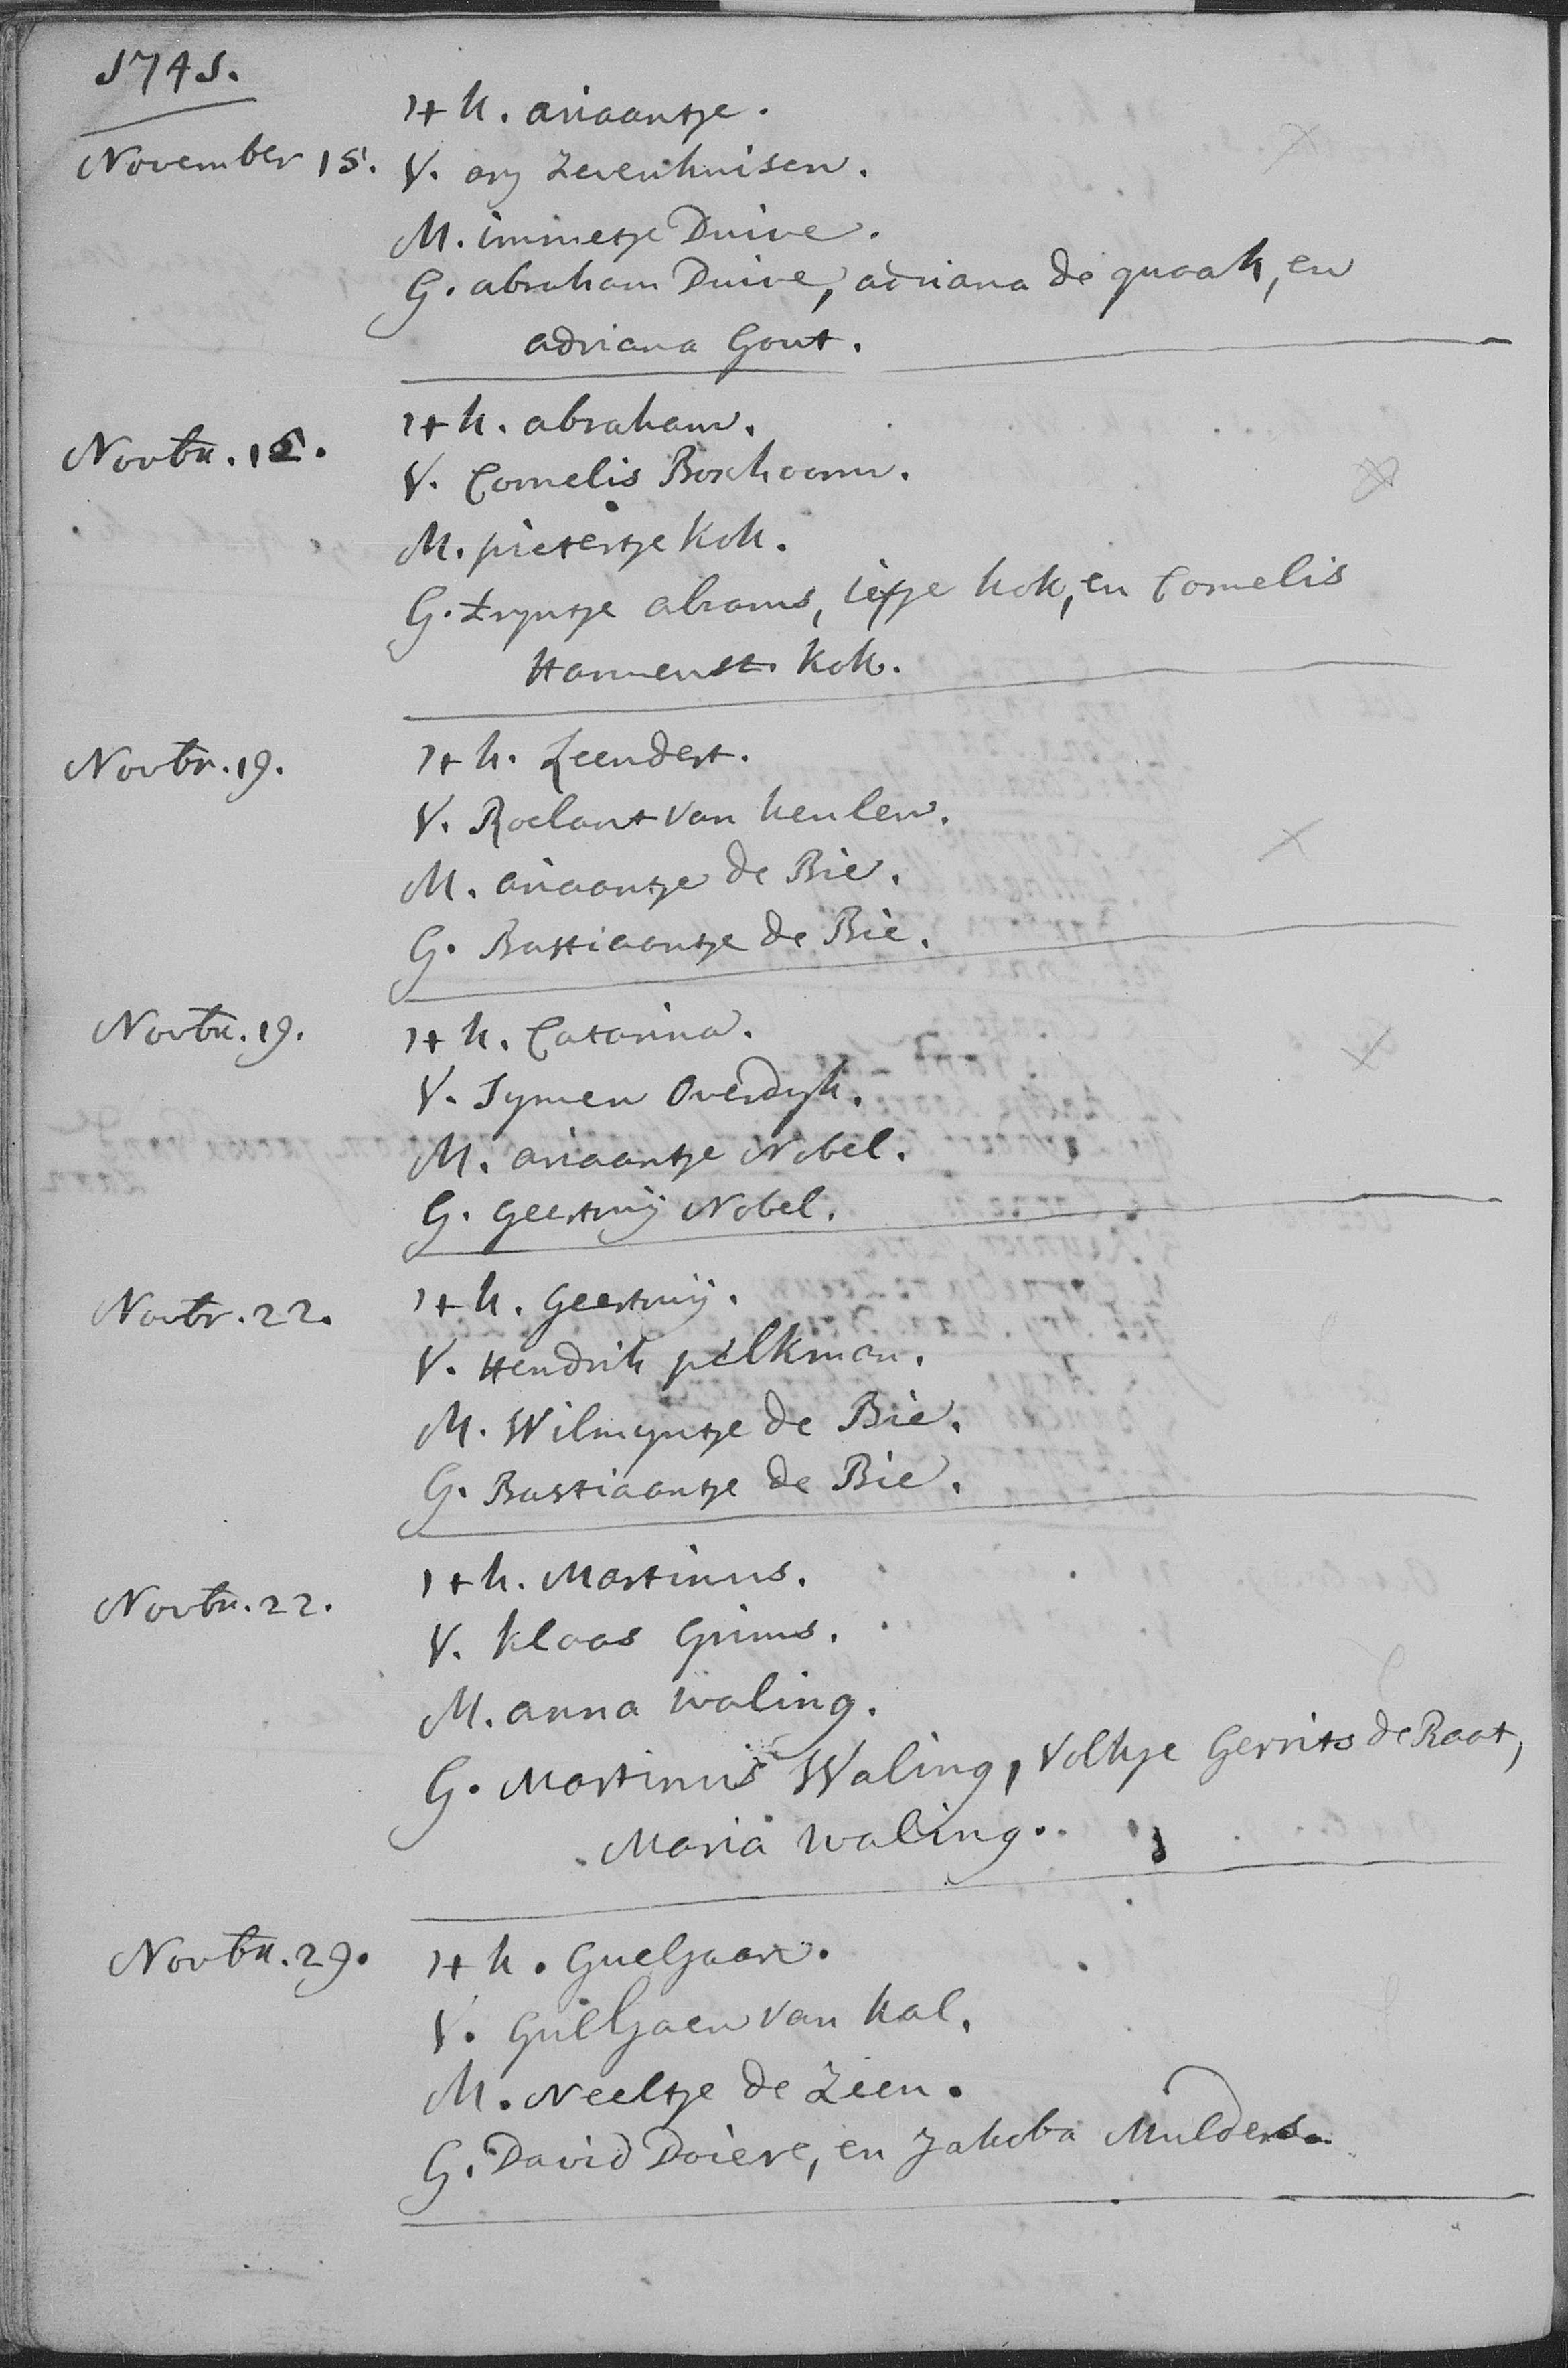 1741.
November 15. 't k. ariaantje.
V. ary Zevenhuisen.
M. immetje Duive.
G. abraham Duive, adriana de quaak, en
adriana Gout.
Novbr. 15. 't k. abraham.
V. Cornelis Boxhoorn.
M. pietertje Kok.
G. tryntje abrams, ietje kok, en Cornelis
Harmensz. Kok.
Novbr. 19. 't k. Leendert.
V. Roelant van keulen.
M. ariaantje de Bie.
G. Bastiaantje de Bie.
Novbr. 19. 't k. Catarina.
V. Symen Overdyk.
M. ariaantje Nobel.
G. Geertruij Nobel.
Novbr. 22. 't k. Geertruij.
V. Hendrik pelkman.
M. Wilmyntje de Bie.
G. Bastiaantje de Bie.
Novbr. 22. 't k. Martinus.
V. klaas Grims.
M. anna waling.
G. Martinus Waling, Volkje Gerrits de Raat,
Maria waling.
Novbr. 29. 't k. Gueljaan.
V. Guilljaen van kal.
M. Neeltje de Zeeu.
G. David Doiere, en Jakoba Mulders.